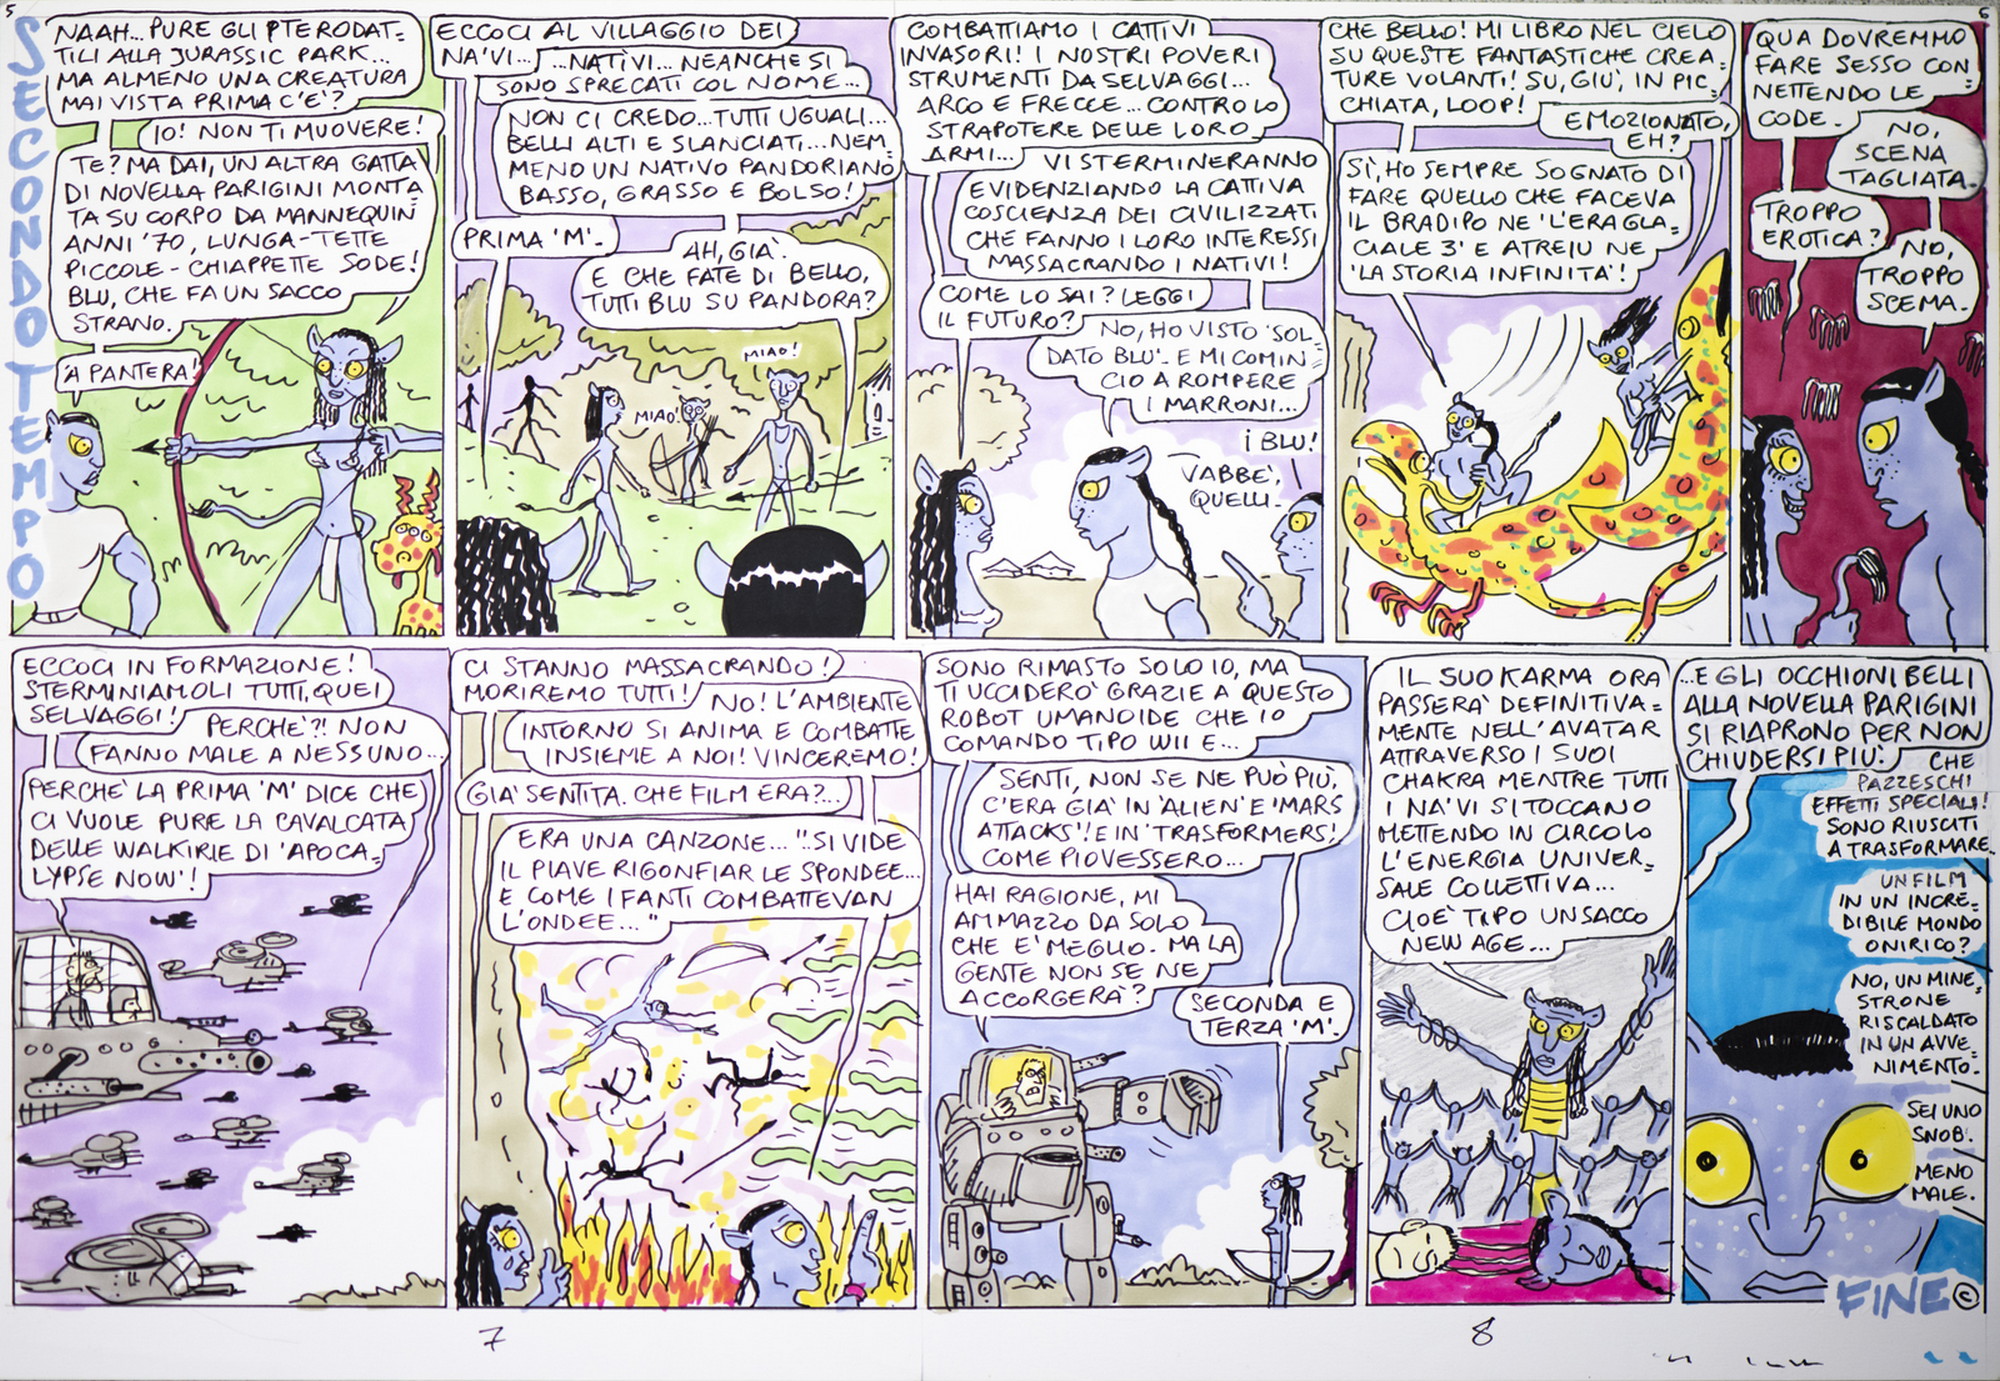 5
SECONDO TEMPO
NAAH... PURE GLI PTERODAT-
TILI ALLA JURASSIC PARK...
MA ALMENO UNA CREATURA
MAI VISTA PRIMA C'E'?
IO! NON TI MUOVERE!
TE? MA DAI, UN ALTRA GATTA
DI NOVELLA PARIGINI MONTA-
TA SU CORPO DA MANNEQUIN
ANNI '70, LUNGA-TETTE
PICCOLE-CHIAPPETTE SODE!
BLU, CHE FA UN SACCO
STRANO.
'A PANTERA!
ECCOCI AL VILLAGGIO DEI
NA'VI...
...NATIVI... NEANCHE SI
SONO SPRECATI COL NOME...
NON CI CREDO... TUTTI UGUALI...
BELLI ALTI E SLANCIATI... NEM-
MENO UN NATIVO PANDORIANO
BASSO, GRASSO E BOLSO!
PRIMA 'M'.
AH, GIA'.
E CHE FATE DI BELLO,
TUTTI BLU SU PANDORA?
MIAO!
MIAO!
COMBATTIAMO I CATTIVI
INVASORI! I NOSTRI POVERI
STRUMENTI DA SELVAGGI...
ARCO E FRECCE... CONTRO LO
STRAPOTERE DELLE LORO
ARMI...
VI STERMINERANNO
EVIDENZIANDO LA CATTIVA
COSCIENZA DEI CIVILIZZATI
CHE FANNO I LORO INTERESSI
MASSACRANDO I NATIVI!
COME LO SAI? LEGGI
IL FUTURO?
NO, HO VISTO 'SOL-
DATO BLU'. E MI COMIN-
CIO A ROMPERE
I MARRONI...
I BLU!
VABBE',
QUELLI.
CHE BELLO! MI LIBRO NEL CIELO
SU QUESTE FANTASTICHE CREA-
TURE VOLANTI! SU, GIU', IN PIC-
CHIATA, LOOP!
EMOZIONATO,
EH?
SI', HO SEMPRE SOGNATO DI
FARE QUELLO CHE FACEVA
IL BRADIPO NE 'L'ERA GLA-
CIALE 3' E ATREIU NE
'LA STORIA INFINITA'!
6
QUA DOVREMMO
FARE SESSO CON-
NETTENDO LE
CODE.
NO,
SCENA
TAGLIATA.
TROPPO
EROTICA?
NO,
TROPPO
SCEMA.
ECCOCI IN FORMAZIONE!
STERMINIAMOLI TUTTI, QUEI
SELVAGGI!
PERCHE'?! NON
FANNO MALE A NESSUNO...
PERCHE' LA PRIMA 'M' DICE CHE
CI VUOLE PURE LA CAVALCATA
DELLE WALKIRIE DI 'APOCA-
LYPSE NOW'!
CI STANNO MASSACRANDO!
MORIREMO TUTTI!
NO! L'AMBIENTE
INTORNO SI ANIMA E COMBATTE
INSIEME A NOI! VINCEREMO!
GIA' SENTITA. CHE FILM ERA?...
ERA UNA CANZONE... "...SI VIDE
IL PIAVE RIGONFIAR LE SPONDEE...
E COME I FANTI COMBATTEVAN
L'ONDEE..."
SONO RIMASTO SOLO IO, MA
TI UCCIDERO' GRAZIE A QUESTO
ROBOT UMANOIDE CHE IO
COMANDO TIPO WII E...
SENTI, NON SE NE PUO' PIU',
C'ERA GIA' IN 'ALIEN' E 'MARS
ATTACKS'! E IN 'TRASFORMERS'!
COME PIOVESSERO...
HAI RAGIONE, MI
AMMAZZO DA SOLO
CHE E' MEGLIO. MA LA
GENTE NON SE NE
ACCORGERA'?
SECONDA E
TERZA 'M'.
IL SUO KARMA ORA
PASSERA' DEFINITIVA-
MENTE NELL'AVATAR
ATTRAVERSO I SUOI
CHAKRA MENTRE TUTTI
I NA'VI SI TOCCANO
METTENDO IN CIRCOLO
L'ENERGIA UNIVER-
SALE COLLETTIVA...
CIOE' TIPO UN SACCO
NEW AGE...
...E GLI OCCHIONI BELLI
ALLA NOVELLA PARIGINI
SI RIAPRONO PER NON
CHIUDERSI PIU'.
CHE
PAZZESCHI
EFFETTI SPECIALI!
SONO RIUSCITI
A TRASFORMARE
UN FILM
IN UN INCRE-
DIBILE MONDO
ONIRICO?
NO, UN MINE-
STRONE
RISCALDATO
IN UN AVVE-
NIMENTO.
SEI UNO
SNOB.
MENO
MALE.
FINE ©
7
8